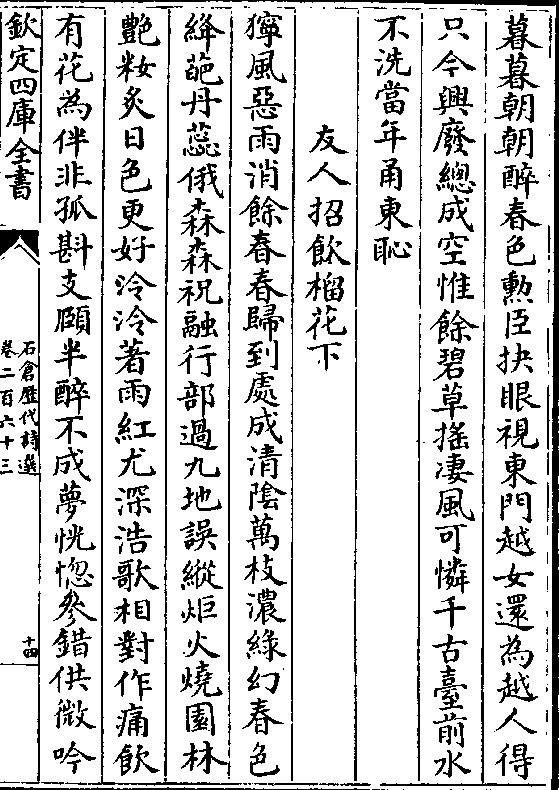 暮暮朝朝醉春色勲臣抉眼視東門越女還為越人得
只今興廢總成空惟餘碧草揺淒風可憐千古臺前水
不洗當年甬東恥
友人招飲榴花下
獰風惡雨消餘春春歸到處成清陰萬枝濃緑幻春色
絳葩丹蕊俄森森祝融行部過九地誤縱炬火燒園林
艷粧炙日色更好泠泠著雨紅尤深浩歌相對作痛飲
有花為伴非孤斟支頤半醉不成夢恍惚參錯供微吟
欽定四庫全書
石倉歴代詩選
卷二百六十三
十四